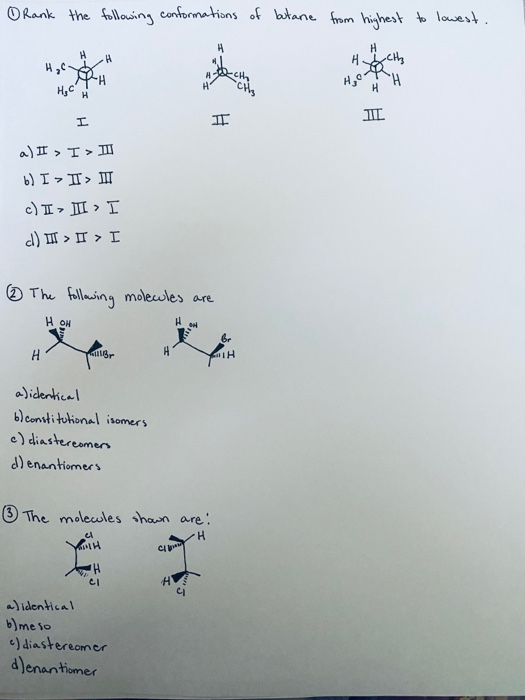 ① Rank the following conformations of butane from highest to lowest.
H H H₃C H H₃C H
H H H CH₃ H CH₃
H H CH₃ H₃C H H
I II III
a) II > I > III
b) I > II > III
c) II > III > I
d) III > II > I
② The following molecules are
H OH H Br
H OH Br H H
a) identical
b) constitutional isomers
c) diastereomers
d) enantiomers
③ The molecules shown are:
Cl H H Cl
Cl H H Cl
a) identical
b) meso
c) diastereomer
d) enantiomer